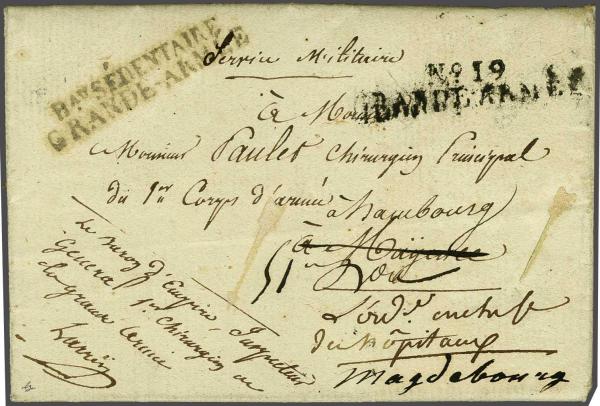 BAU SÉDENTAIRE
GRANDE-ARMÉE
Service Militaire
No. 19
GRANDE-ARMÉE
à Monsieur
Monsieur Paulet Chirurgien Principal
du 1er Corps d'armée à hambourg
à Mayence
51
L'ord.r en chef
des hôpitaux
Magdebourg
Le baron d'Empire, Inspecteur
General 1er Chirurgien
de grande Armée
Larrey